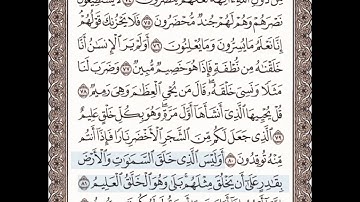 مِن دُونِ ٱللَّهِ ءَالِهَةً لَّعَلَّهُمْ يُنصَرُونَ ٧٤ لَا يَسْتَطِيعُونَ
نَصْرَهُمْ وَهُمْ لَهُمْ جُندٌ مُّحْضَرُونَ ٧٥ فَلَا يَحْزُنكَ قَوْلُهُمْ
إِنَّا نَعْلَمُ مَا يُسِرُّونَ وَمَا يُعْلِنُونَ ٧٦ أَوَلَمْ يَرَ ٱلْإِنسَٰنُ أَنَّا
خَلَقْنَٰهُ مِن نُّطْفَةٍ فَإِذَا هُوَ خَصِيمٌ مُّبِينٌ ٧٧ وَضَرَبَ لَنَا
مَثَلًا وَنَسِىَ خَلْقَهُۥ قَالَ مَن يُحْىِ ٱلْعِظَٰمَ وَهِىَ رَمِيمٌ ٧٨
قُلْ يُحْيِيهَا ٱلَّذِىٓ أَنشَأَهَآ أَوَّلَ مَرَّةٍ وَهُوَ بِكُلِّ خَلْقٍ عَلِيمٌ ٧٩
ٱلَّذِى جَعَلَ لَكُم مِّنَ ٱلشَّجَرِ ٱلْأَخْضَرِ نَارًا فَإِذَآ أَنتُم
مِّنْهُ تُوقِدُونَ ٨٠ أَوَلَيْسَ ٱلَّذِى خَلَقَ ٱلسَّمَٰوَٰتِ وَٱلْأَرْضَ
بِقَٰدِرٍ عَلَىٰٓ أَن يَخْلُقَ مِثْلَهُم بَلَىٰ وَهُوَ ٱلْخَلَّٰقُ ٱلْعَلِيمُ ٨١